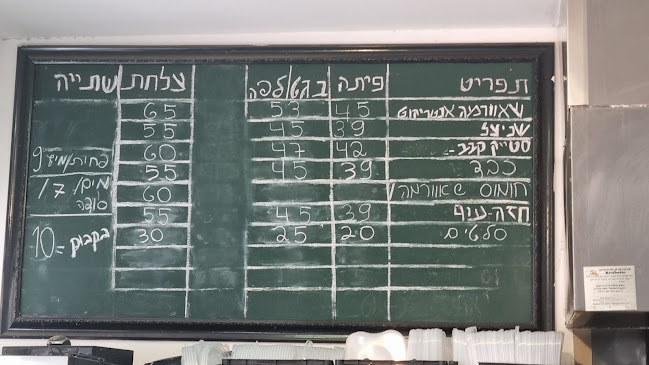 תפריט פיתה בגט/לפה צלחת שתייה
שאוורמה אנטריקוט 45 53 65
שניצל 39 45 55
סטייק קבב 42 47 60
כבד 39 45 55
חומוס שאוורמה 60
חזה עוף 39 45 55
סלטים 20 25 30
פחית/מיץ 9
מים/ 7
סודה
בקבוק = 10